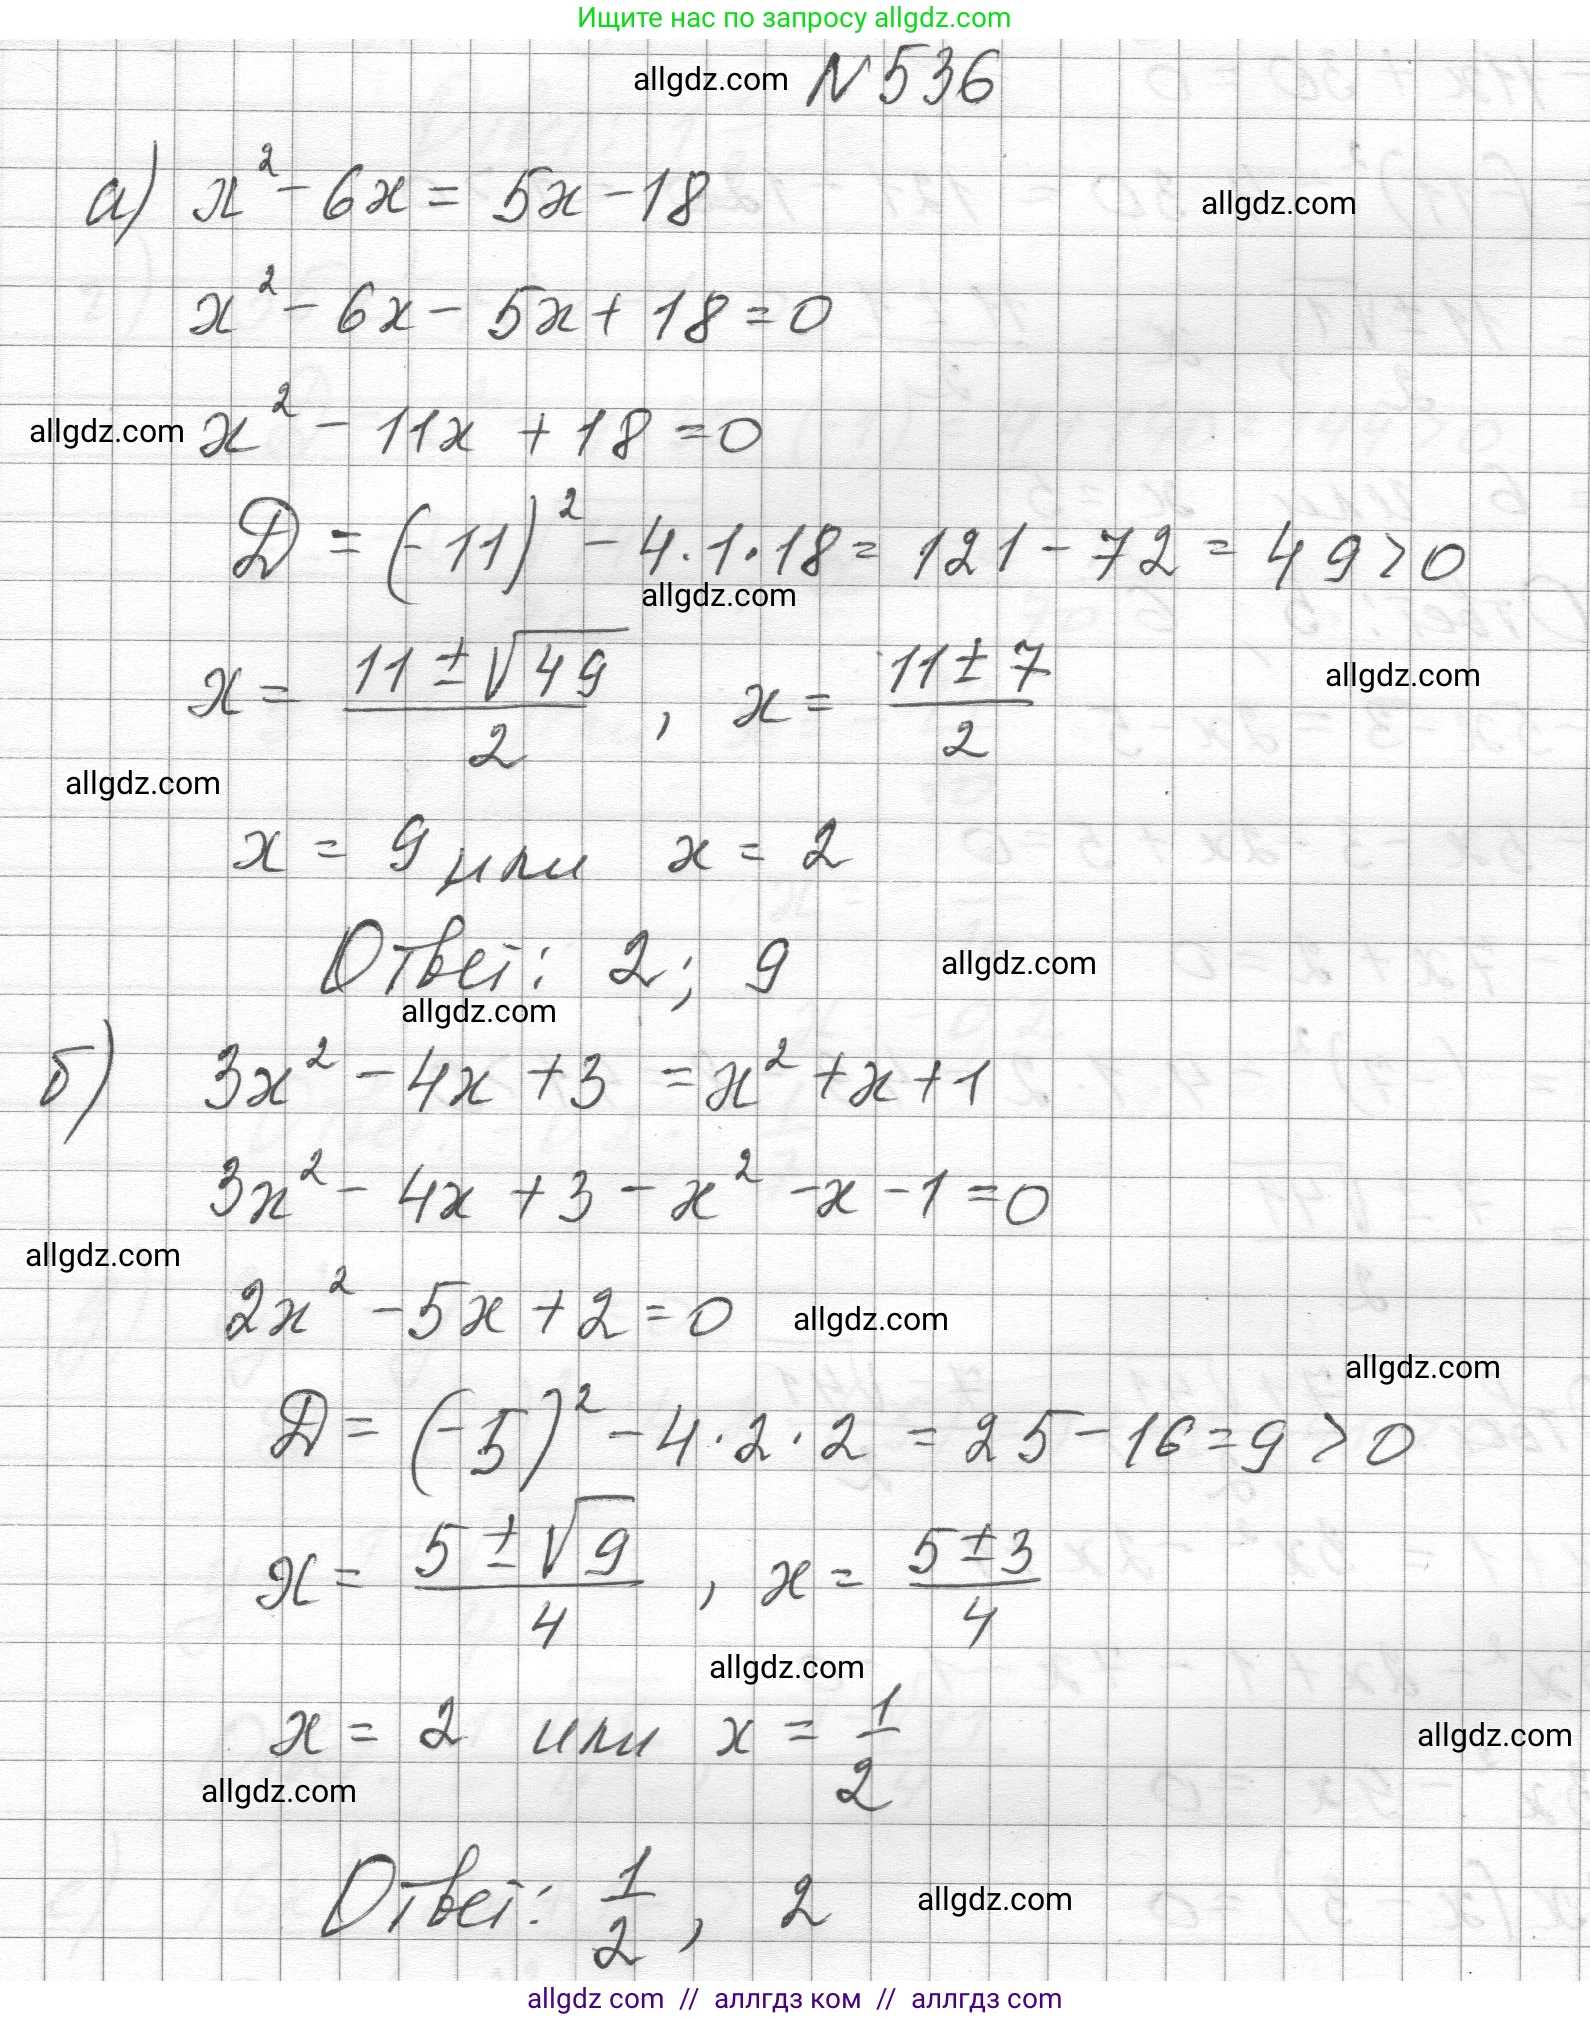 Ищите нас по запросу allgdz.com
allgdz.com N 536
а) x² - 6x = 5x - 18
allgdz.com
x² - 6x - 5x + 18 = 0
allgdz.com x² - 11x + 18 = 0
D = (-11)² - 4·1·18 = 121 - 72 = 49 > 0
allgdz.com
x = (11 ± √49)/2 , x = (11 ± 7)/2
allgdz.com
allgdz.com
x = 9 или x = 2
Ответ: 2; 9 allgdz.com
allgdz.com
б) 3x² - 4x + 3 = x² + x + 1
3x² - 4x + 3 - x² - x - 1 = 0
allgdz.com
2x² - 5x + 2 = 0 allgdz.com
allgdz.com
D = (-5)² - 4·2·2 = 25 - 16 = 9 > 0
x = (5 ± √9)/4 , x = (5 ± 3)/4
allgdz.com
x = 2 или x = 1/2
allgdz.com
allgdz.com
Ответ: 1/2, 2 allgdz.com
allgdz com // аллгдз ком // аллгдз com